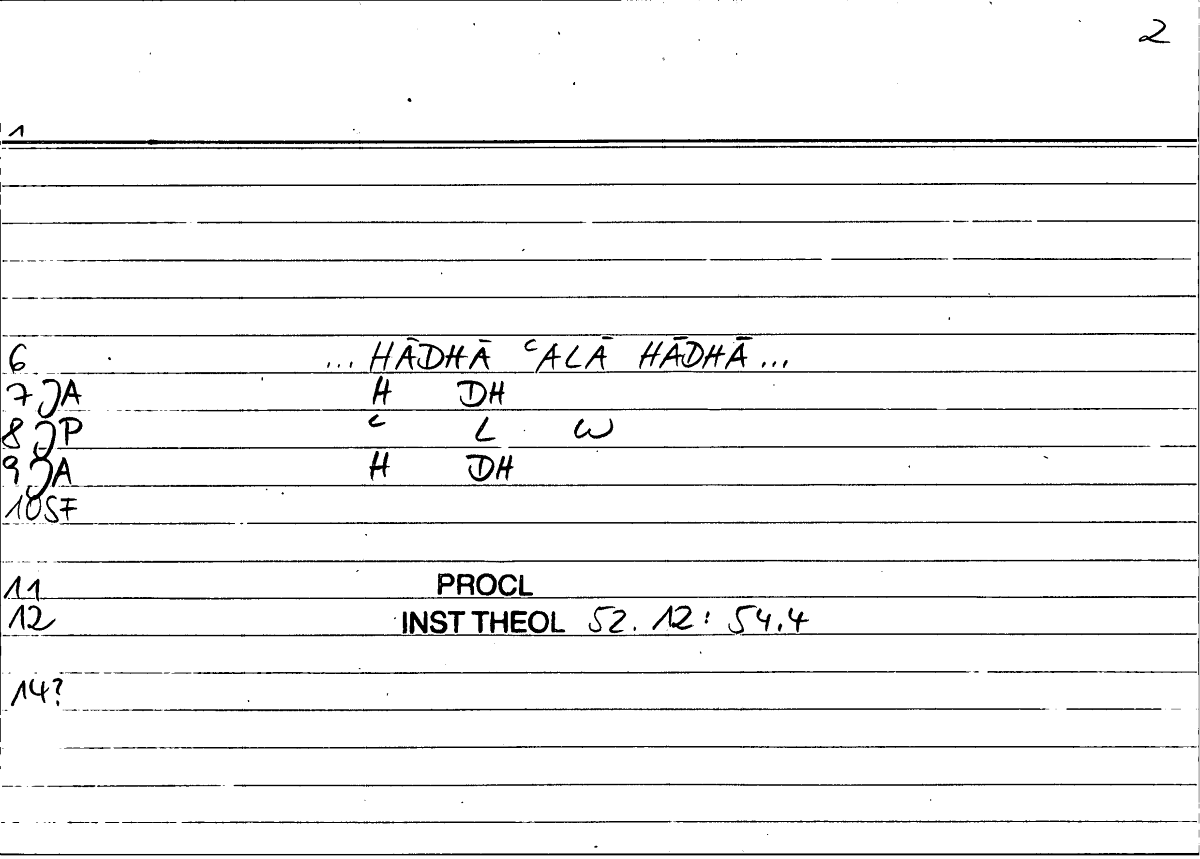 2
1
6 ... HĀDHĀ ʿALĀ HĀDHĀ ...
7 JA H DH
8 JP ʿ L W
9 JA H DH
10 SF
11 PROCL
12 INST THEOL 52.12 : 54.4
14?